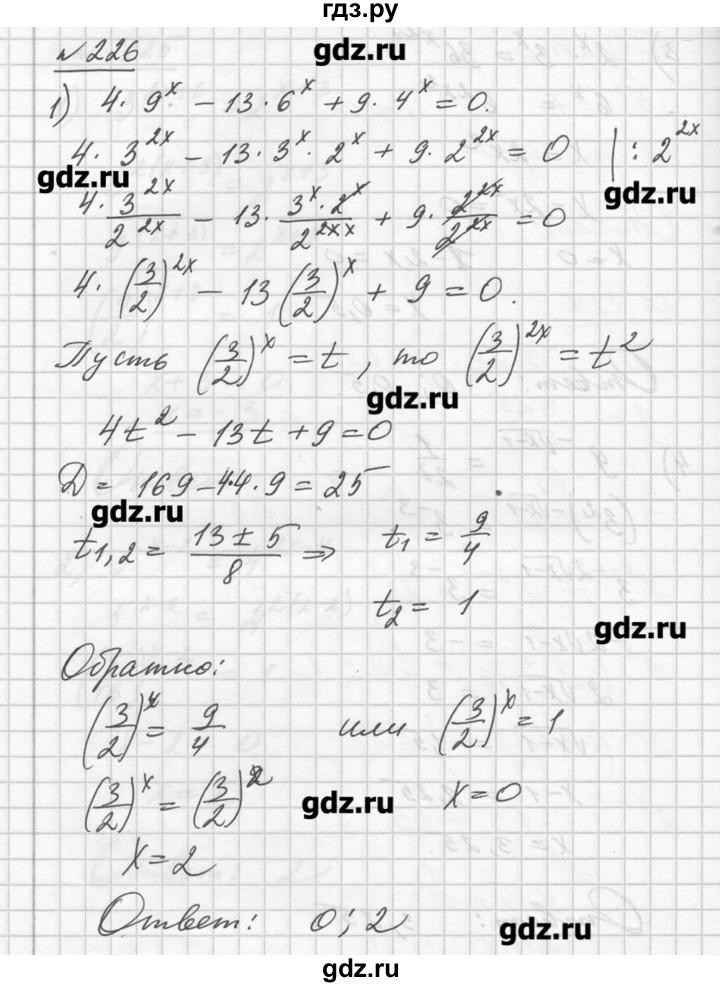 гдз.ру
№ 226
gdz.ru
1) 4 · 9^x − 13 · 6^x + 9 · 4^x = 0.
4 · 3^{2x} − 13 · 3^x · 2^x + 9 · 2^{2x} = 0 | : 2^{2x}
gdz.ru
gdz.ru
4 · 3^{2x}/2^{2x} − 13 · (3^x · 2^x)/2^{2x x} + 9 · 2^{2x}/2^{2x} = 0
4 · (3/2)^{2x} − 13 (3/2)^x + 9 = 0.
Пусть (3/2)^x = t, то (3/2)^{2x} = t^2
gdz.ru
4t^2 − 13t + 9 = 0
D = 169 − 4·4·9 = 25
gdz.ru
t_{1,2} = (13 ± 5)/8 ⇒ t_1 = 9/4
t_2 = 1
gdz.ru
Обратно:
(3/2)^x = 9/4 или (3/2)^x = 1
(3/2)^x = (3/2)^2 x = 0
gdz.ru
x = 2
Ответ: 0; 2
gdz.ru
gdz.ru